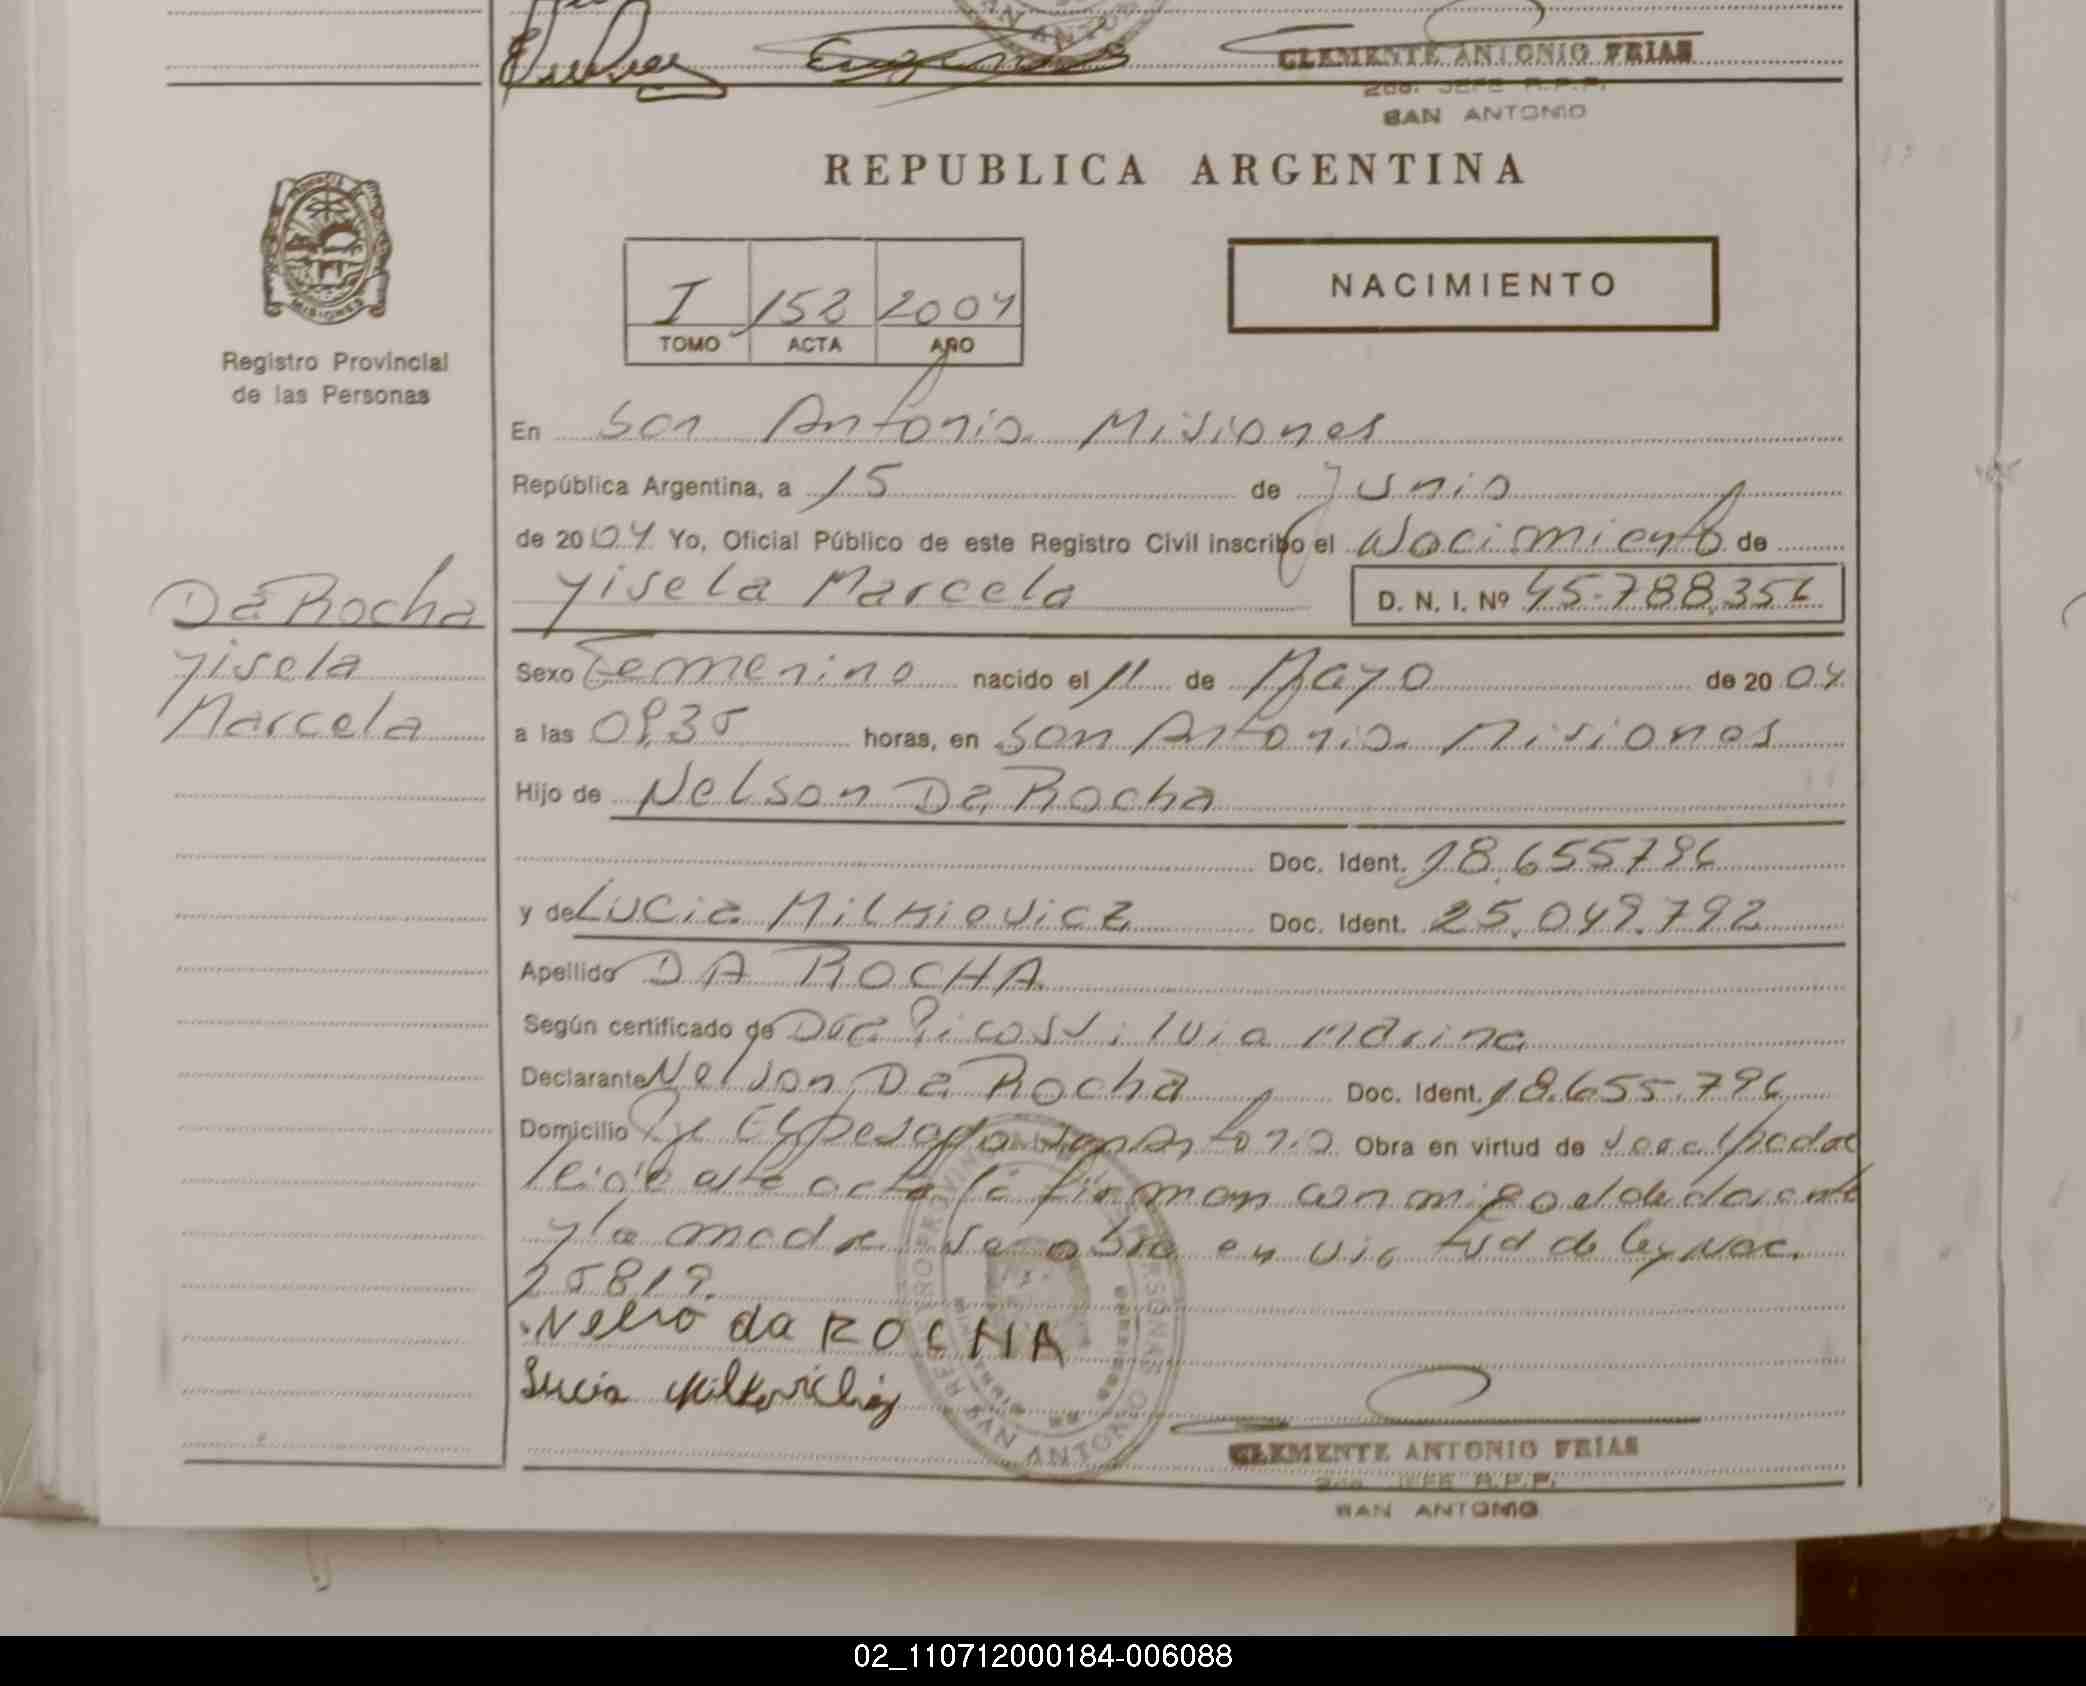 SAN ANTONIO
CLEMENTE ANTONIO FRIAS
2do. JEFE R.P.P.
SAN ANTONIO
MISIONES
Registro Provincial
de las Personas
REPUBLICA ARGENTINA
I 152 2004
TOMO ACTA AÑO
NACIMIENTO
En San Antonio Misiones
República Argentina, a 15 de Junio
de 2004 Yo, Oficial Público de este Registro Civil inscribo el Nacimiento de
Yisela Marcela D. N. I. Nº 45.788.356
Da Rocha
Yisela
Marcela
Sexo Femenino nacido el 11 de Mayo de 2004
a las 09,35 horas, en San Antonio Misiones
Hijo de Nelson Da Rocha
Doc. Ident. 18.655796
y de Lucia Milkievicz Doc. Ident. 25.049.792
Apellido DA ROCHA
Según certificado de Dra Picos Silvia Marina
Declarante Nelson Da Rocha Doc. Ident. 18.655.796
Domicilio San Antonio Obra en virtud de
leida este acta la firman conmigo el declarante
y la madre se obra en virtud de Ley Nac.
25819.
Nelso da ROCHA
Lucia
SAN ANTONIO
CLEMENTE ANTONIO FRIAS
2do. JEFE R.P.P.
SAN ANTONIO
02_110712000184-006088